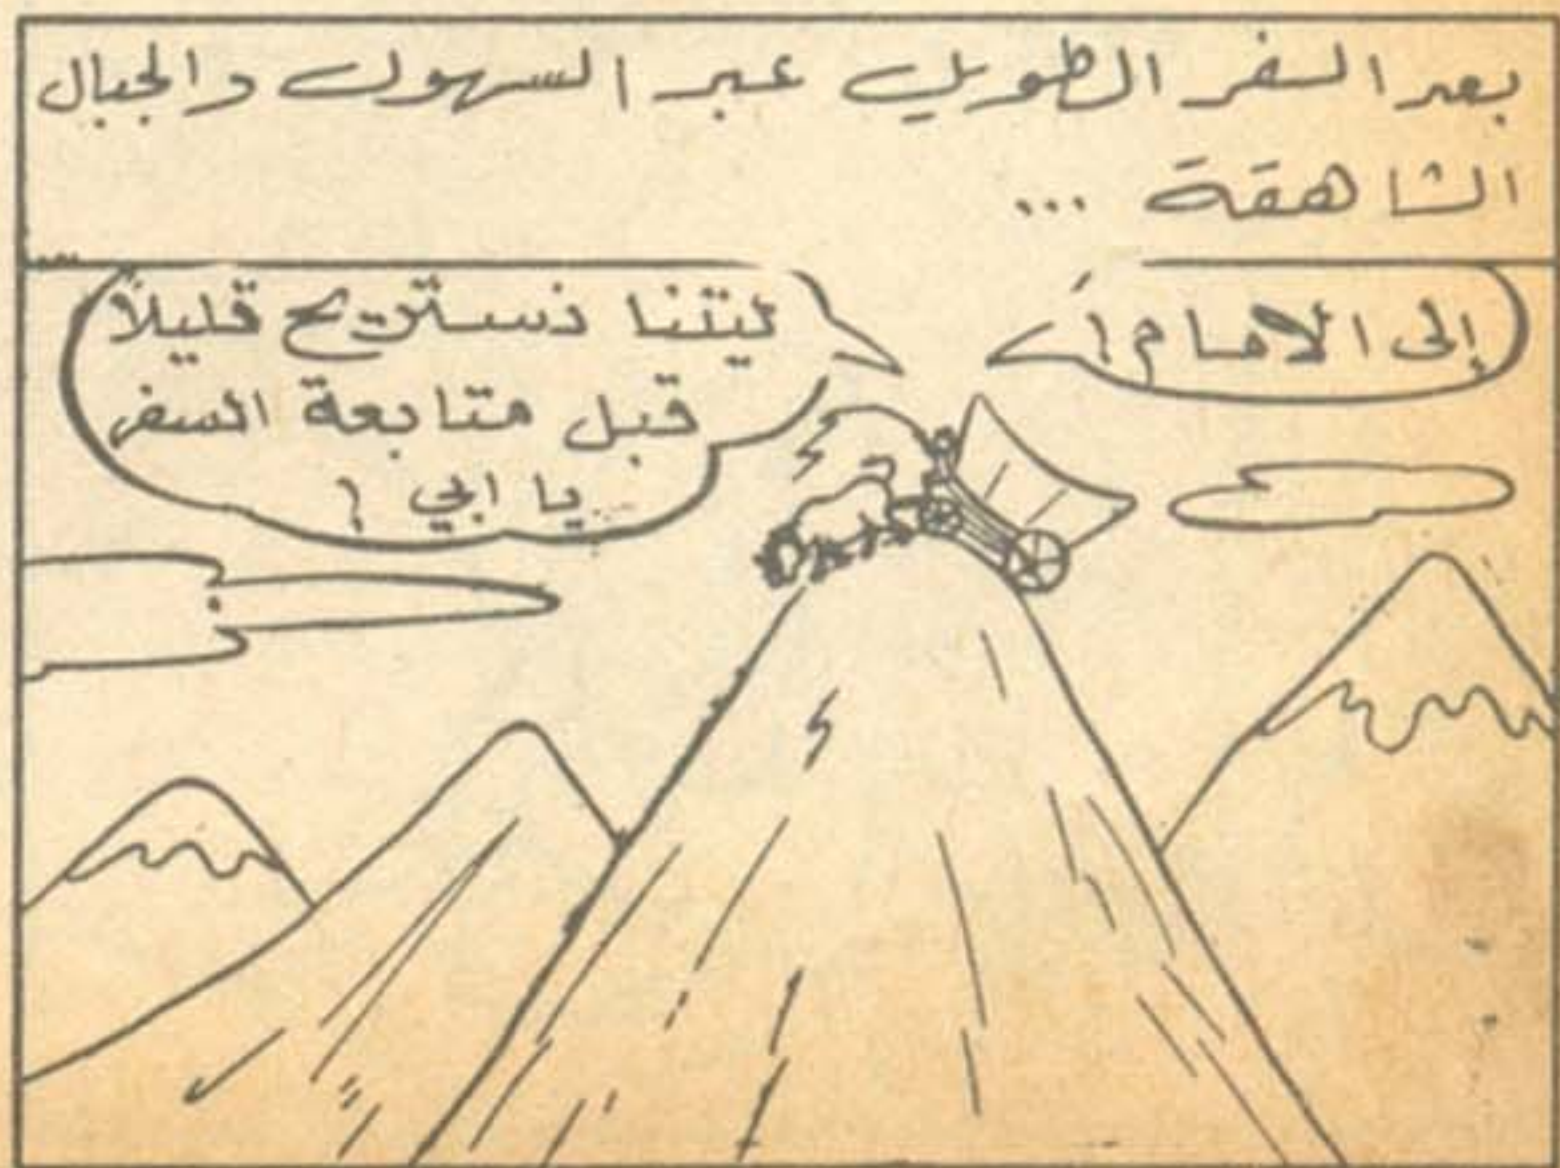 بعد السفر الطويل عبر السهول والجبال
الشاهقة ...
إلى الامام !
ليتنا نستريح قليلاً
قبل متابعة السفر
يا ابي ؟